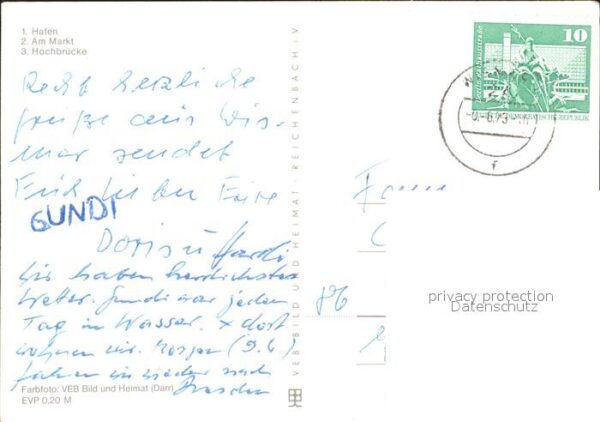 1. Hafen
2. Am Markt
3. Hochbrücke
Recht herzliche
Grüße aus Wis-
mar sendet
Euch
GUNDI
Doris u. Hardi
Wir haben herrlichstes
Wetter. Gundi war jeden
Tag im Wasser. x dort
wohnen wir. Morgen (9.6)
fahren wir wieder nach
Dresden
Farbfoto: VEB Bild und Heimat (Darr)
EVP 0,20 M
VEB BILD UND HEIMAT · REICHENBACH i. V.
10
DEMOKRATISCHE REPUBLIK
privacy protection
Datenschutz